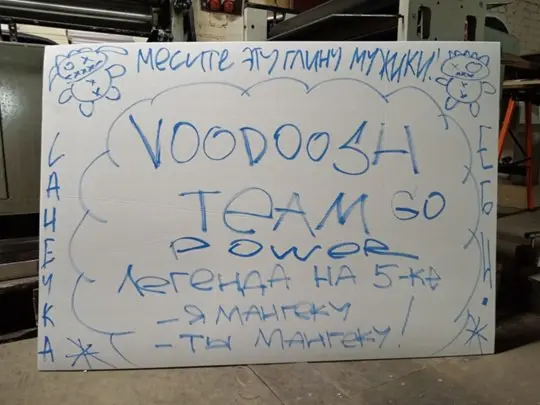 МЕСИТЕ ЭТУ ГЛИНУ МУЖИКИ!
VOODOOSH
TEAM GO
POWER
ЛЕГЕНДА НА 5-КЕ
- Я МАНГЕКУ
- ТЫ МАНГЕКУ!
САНЕЧКА